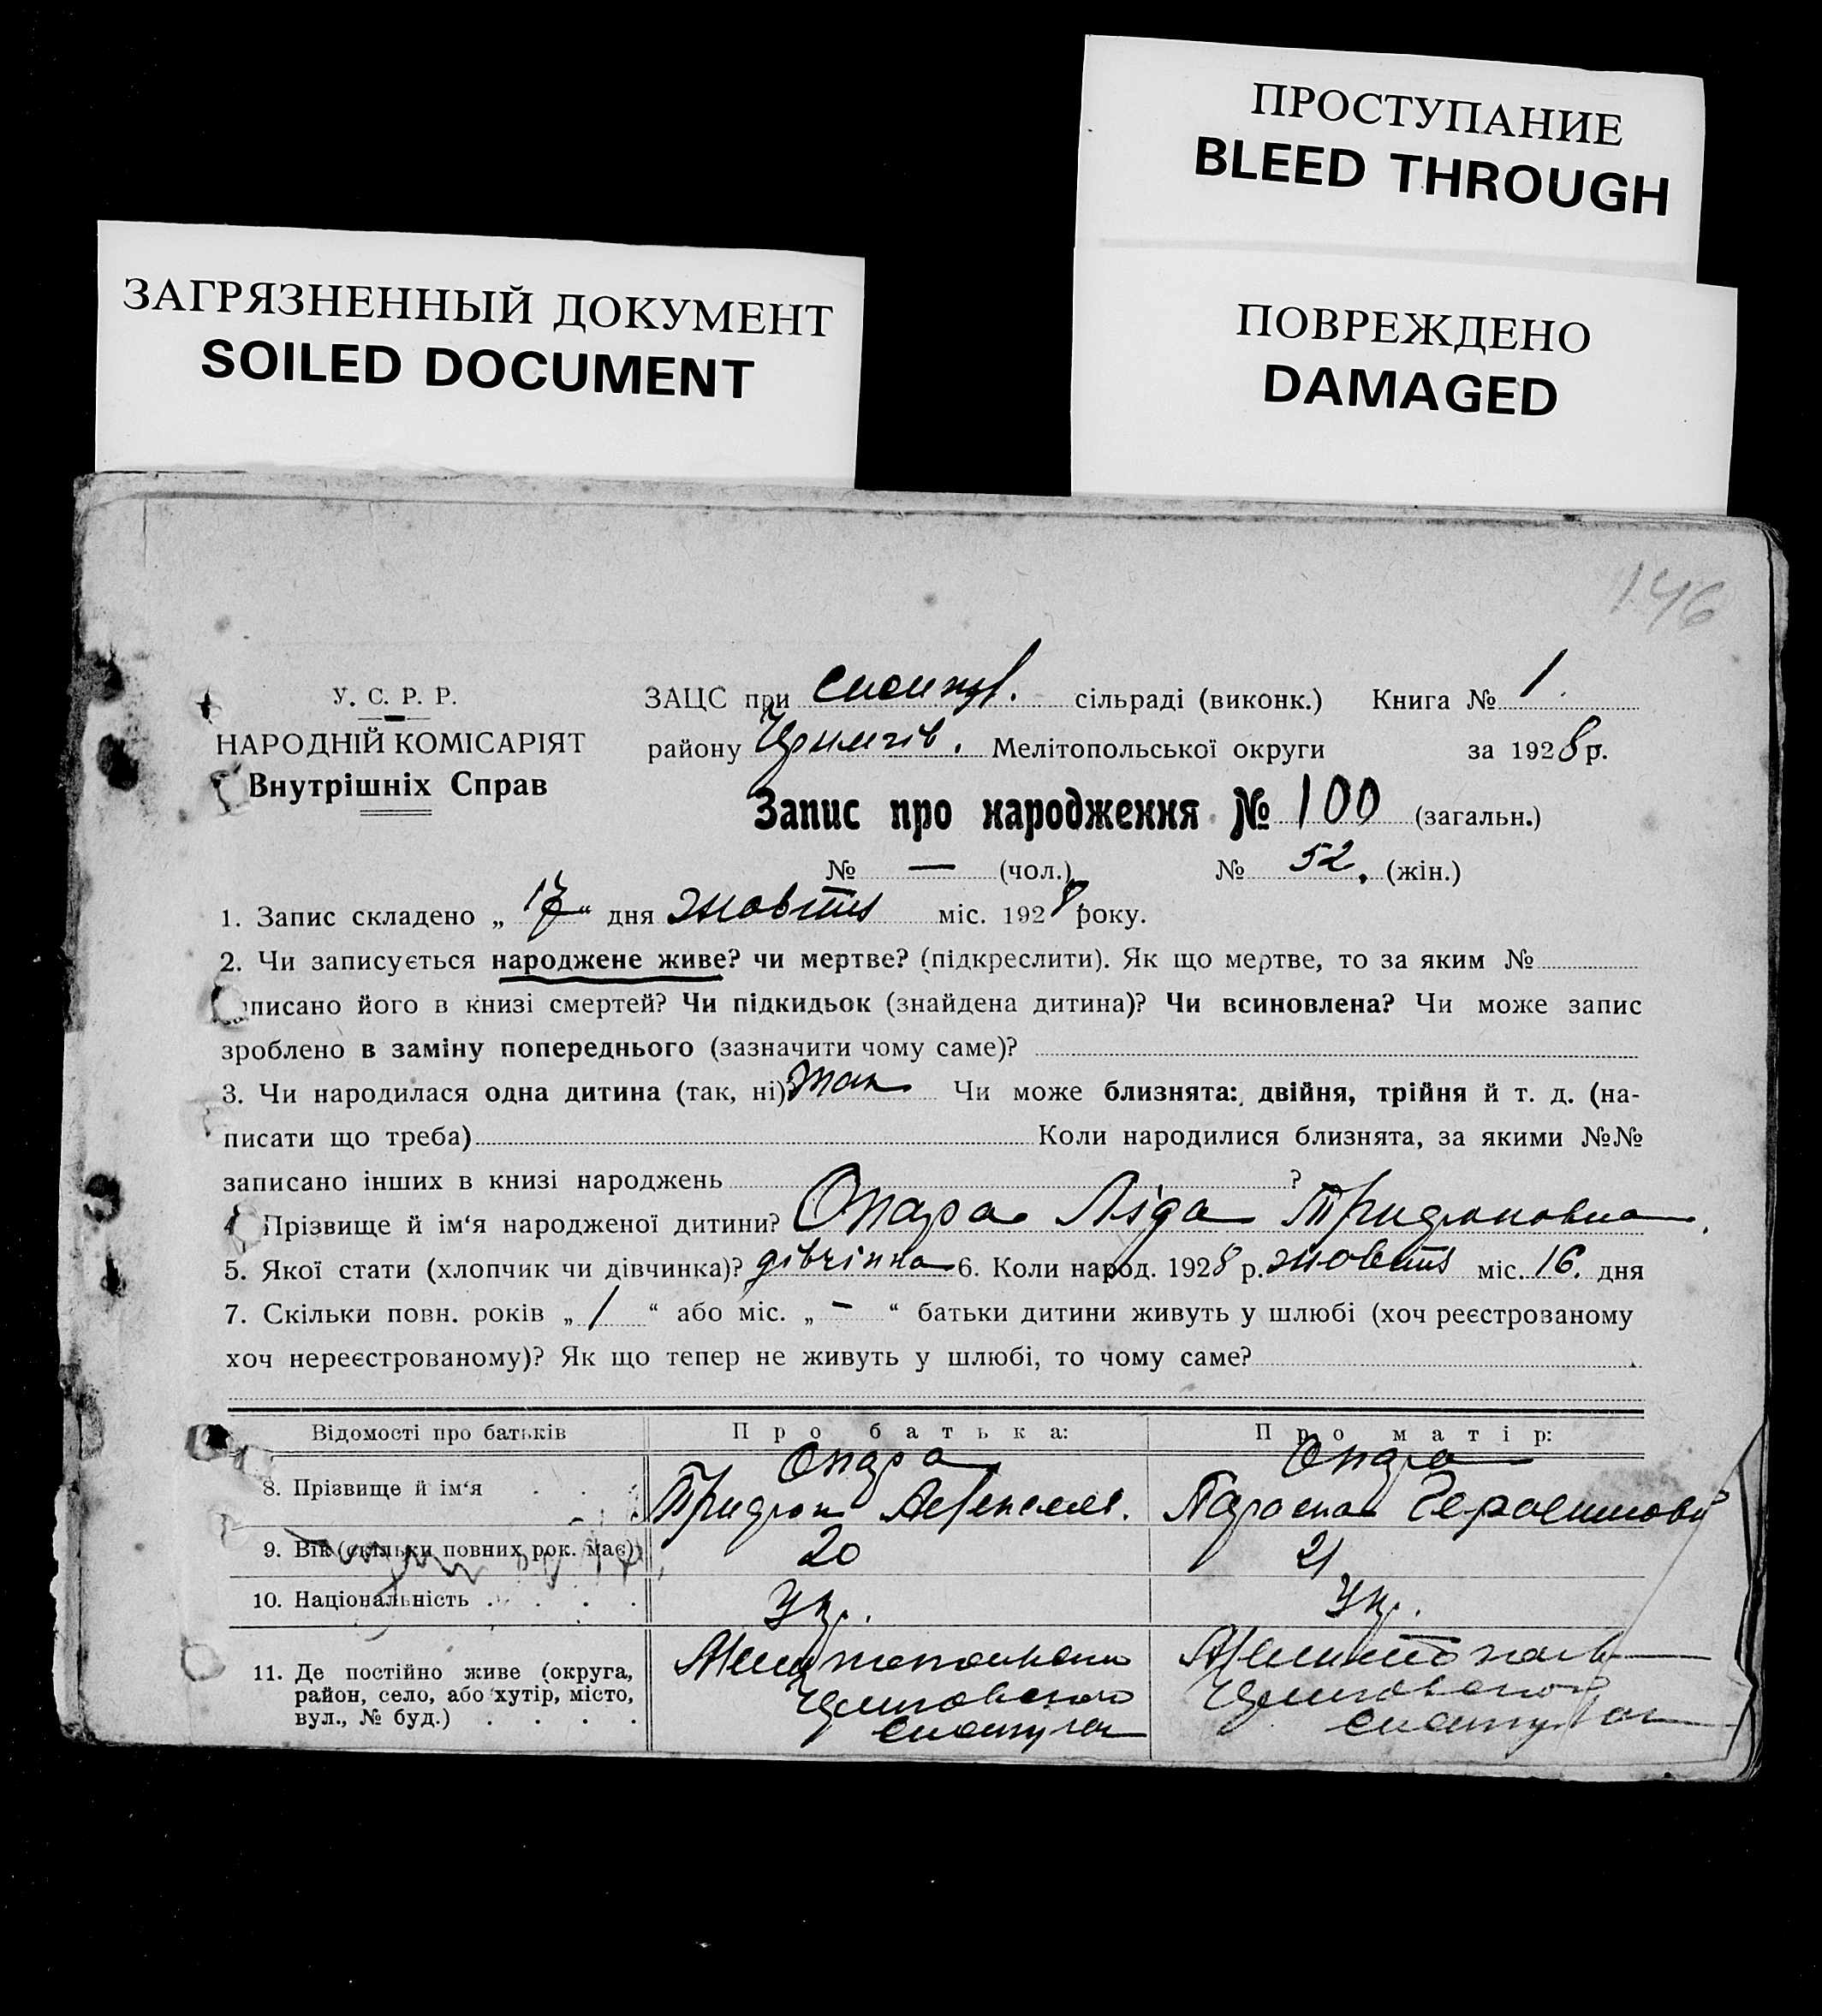 ПРОСТУПАНИЕ
BLEED THROUGH
ЗАГРЯЗНЕННЫЙ ДОКУМЕНТ
SOILED DOCUMENT
ПОВРЕЖДЕНО
DAMAGED
146
У. С. Р. Р.
НАРОДНІЙ КОМІСАРІЯТ
Внутрішніх Справ
ЗАЦС при сільраді (виконк.) Книга № 1
району Мелітопольської округи за 1928 р.
Запис про народження № 100 (загальн.)
№ — (чол.) № 52. (жін.)
1. Запис складено „ 17 “ дня жовтня міс. 1928 року.
2. Чи записується народжене живе? чи мертве? (підкреслити). Як що мертве, то за яким №
записано його в книзі смертей? Чи підкидьок (знайдена дитина)? Чи всиновлена? Чи може запис
зроблено в заміну попереднього (зазначити чому саме)?
3. Чи народилася одна дитина (так, ні)? так Чи може близнята: двійня, трійня й т. д. (на-
писати що треба) Коли народилися близнята, за якими №№
записано інших в книзі народжень ?
4. Прізвище й ім‘я народженої дитини? Опара Ліда
5. Якої стати (хлопчик чи дівчинка)? дівчінка 6. Коли народ. 1928 р. жовтня міс. 16. дня
7. Скільки повн. років „ 1 “ або міс. „ – “ батьки дитини живуть у шлюбі (хоч реєстрованому
хоч нереєстрованому)? Як що тепер не живуть у шлюбі, то чому саме?
Відомості про батьків Про батька: Про матір:
8. Прізвище й ім‘я Опара Опара
9. Вік (скільки повних рок. має) 20 21
10. Національність Укр. Укр.
11. Де постійно живе (округа,
район, село, або хутір, місто,
вул., № буд.)